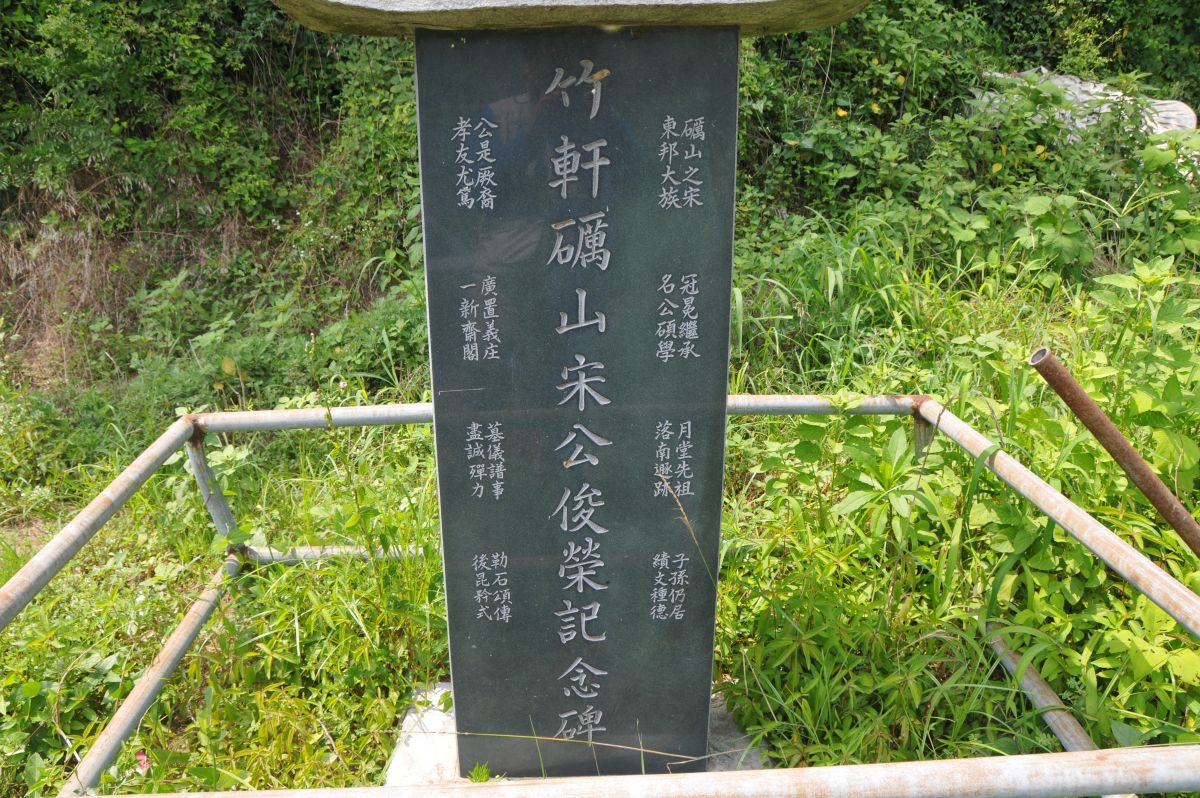 竹軒礪山宋公俊榮記念碑
礪山之宋
東邦大族
冠冕繼承
名公碩學
月堂先祖
落南遯跡
子孫仍居
績文種德
公是厥裔
孝友尤篤
廣置義庄
一新齋閣
墓儀譜事
盡誠殫力
勒石頌傳
後昆矜式